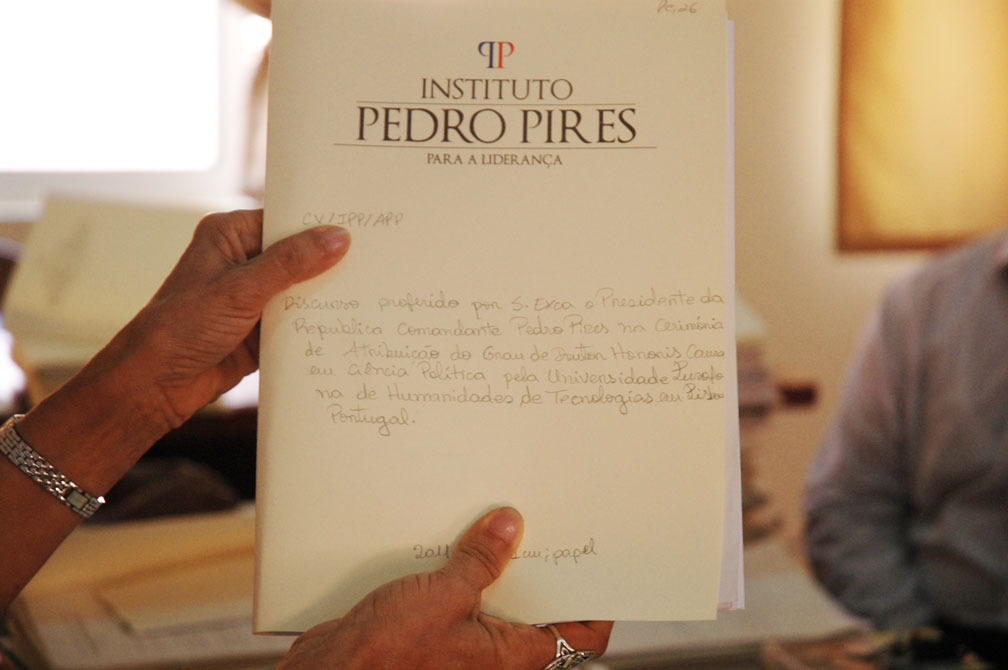 Dc, 26
PP
INSTITUTO
PEDRO PIRES
PARA A LIDERANÇA
CV/IPP/APP
Discurso proferido por S. Exca o Presidente da
Republica Comandante Pedro Pires na Cerimónia
de Atribuição do Grau de Doutor Honoris Causa
em Ciência Política pela Universidade Lusofo
na de Humanidades de Tecnologias em Lisboa
Portugal.
2011 papel